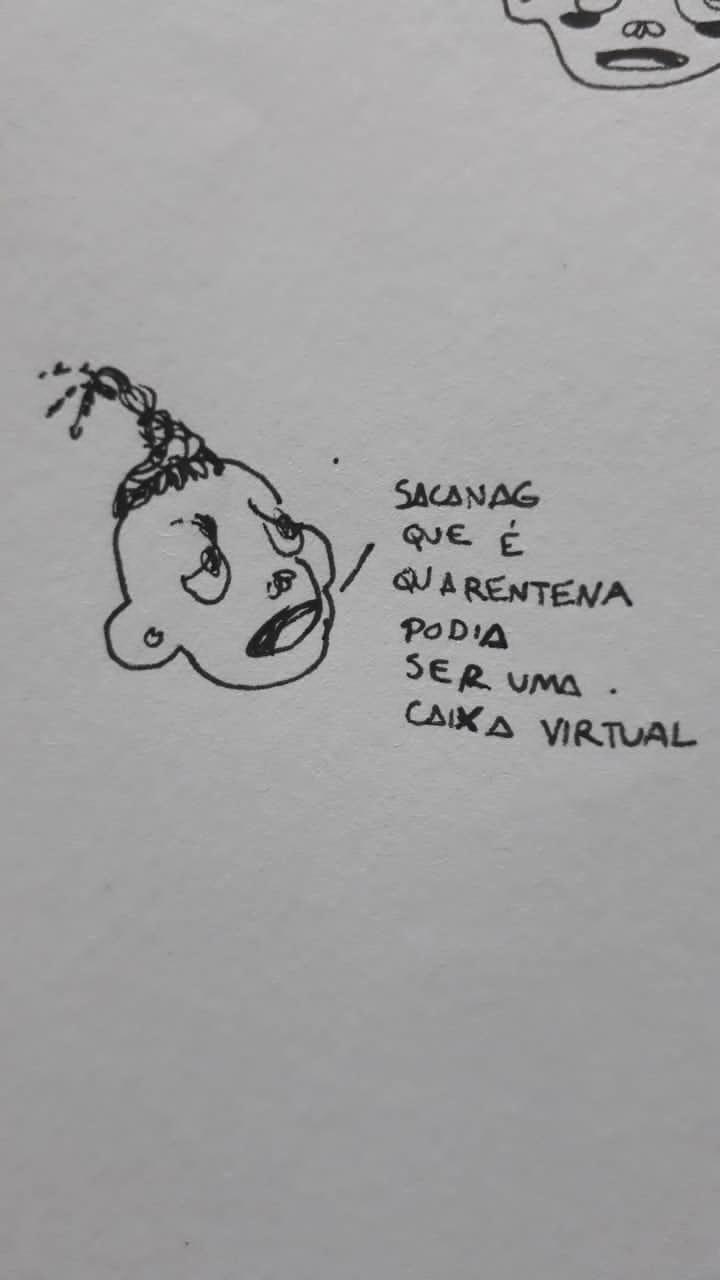 SACANAG
QUE É
QUARENTENA
PODIA
SER UMA .
CAIXA VIRTUAL